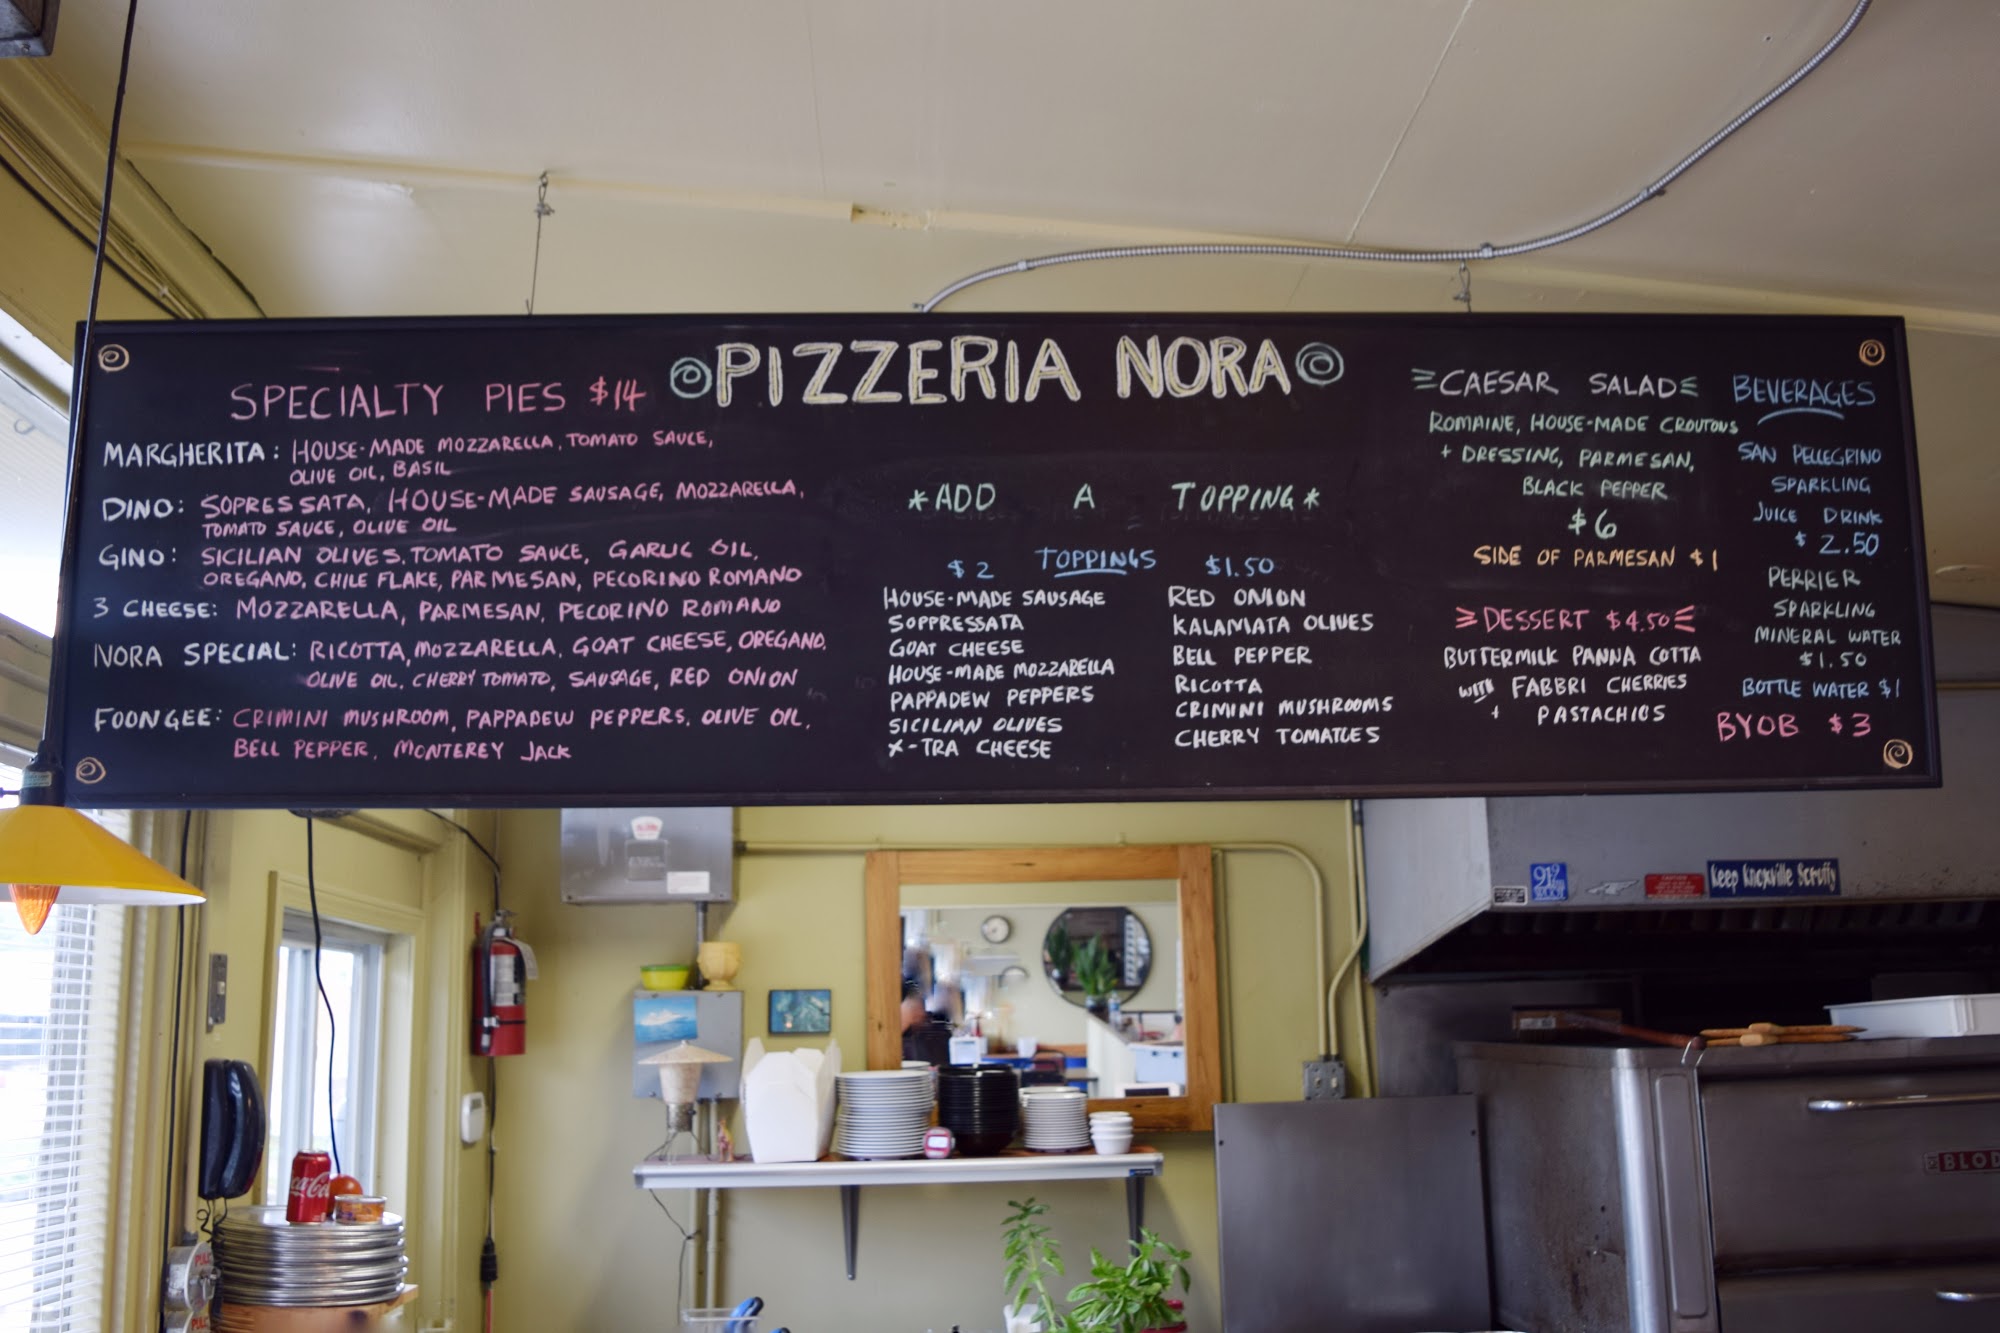 PIZZERIA NORA
SPECIALTY PIES $14
MARGHERITA: HOUSE-MADE MOZZARELLA, TOMATO SAUCE,
OLIVE OIL, BASIL
DINO: SOPRESSATA, HOUSE-MADE SAUSAGE, MOZZARELLA,
TOMATO SAUCE, OLIVE OIL
GINO: SICILIAN OLIVES, TOMATO SAUCE, GARLIC OIL,
OREGANO, CHILE FLAKE, PARMESAN, PECORINO ROMANO
3 CHEESE: MOZZARELLA, PARMESAN, PECORINO ROMANO
NORA SPECIAL: RICOTTA, MOZZARELLA, GOAT CHEESE, OREGANO,
OLIVE OIL, CHERRY TOMATO, SAUSAGE, RED ONION
FOONGEE: CRIMINI MUSHROOM, PAPPADEW PEPPERS, OLIVE OIL,
BELL PEPPER, MONTEREY JACK
*ADD A TOPPING*
$2 TOPPINGS $1.50
HOUSE-MADE SAUSAGE
SOPPRESSATA
GOAT CHEESE
HOUSE-MADE MOZZARELLA
PAPPADEW PEPPERS
SICILIAN OLIVES
X-TRA CHEESE
RED ONION
KALAMATA OLIVES
BELL PEPPER
RICOTTA
CRIMINI MUSHROOMS
CHERRY TOMATOES
CAESAR SALAD
ROMAINE, HOUSE-MADE CROUTONS
+ DRESSING, PARMESAN,
BLACK PEPPER
$6
SIDE OF PARMESAN $1
DESSERT $4.50
BUTTERMILK PANNA COTTA
WITH FABBRI CHERRIES
+ PASTACHIOS
BEVERAGES
SAN PELLEGRINO
SPARKLING
JUICE DRINK
$2.50
PERRIER
SPARKLING
MINERAL WATER
$1.50
BOTTLE WATER $1
BYOB $3
91.9
Keep Knoxville Scruffy
Coca-Cola
BLOD